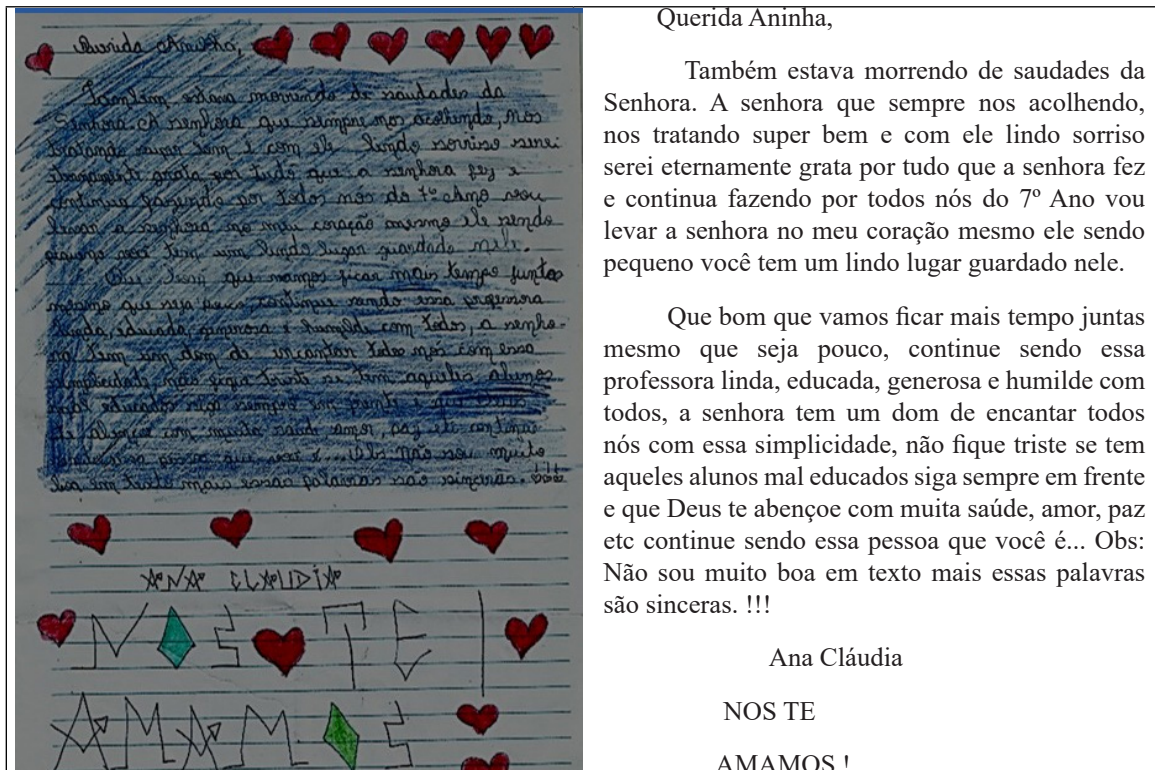 Querida Aninha,
Também estava morrendo de saudades da
Senhora. A senhora que sempre nos acolhendo, nos
tratando super bem e com ele lindo sorriso serei
eternamente grata por tudo que a senhora fez e
continua fazendo por todos nós do 7º Ano vou
levar a senhora no meu coração mesmo ele sendo
pequeno você tem um lindo lugar guardado nele.
Que bom que vamos ficar mais tempo juntas
mesmo que seja pouco continue sendo essa professora
linda, educada, generosa e humilde com todos, a senho-
ra tem um dom de encantar todos nós com essa
simplicidade, não fique triste se tem aqueles alunos
mal educados siga sempre em frente e que Deus
te abençoe com muita saúde, amor, paz etc continue
sendo essa pessoa que você é... Obs: Não sou muito
boa em texto mais essas palavras são sinceras. !!!
ANA CLAUDIA
NOS TE
AMAMOS
Querida Aninha,
Também estava morrendo de saudades da
Senhora. A senhora que sempre nos acolhendo,
nos tratando super bem e com ele lindo sorriso
serei eternamente grata por tudo que a senhora fez
e continua fazendo por todos nós do 7º Ano vou
levar a senhora no meu coração mesmo ele sendo
pequeno você tem um lindo lugar guardado nele.
Que bom que vamos ficar mais tempo juntas
mesmo que seja pouco, continue sendo essa
professora linda, educada, generosa e humilde com
todos, a senhora tem um dom de encantar todos
nós com essa simplicidade, não fique triste se tem
aqueles alunos mal educados siga sempre em frente
e que Deus te abençoe com muita saúde, amor, paz
etc continue sendo essa pessoa que você é... Obs:
Não sou muito boa em texto mais essas palavras
são sinceras. !!!
Ana Cláudia
NOS TE
AMAMOS !